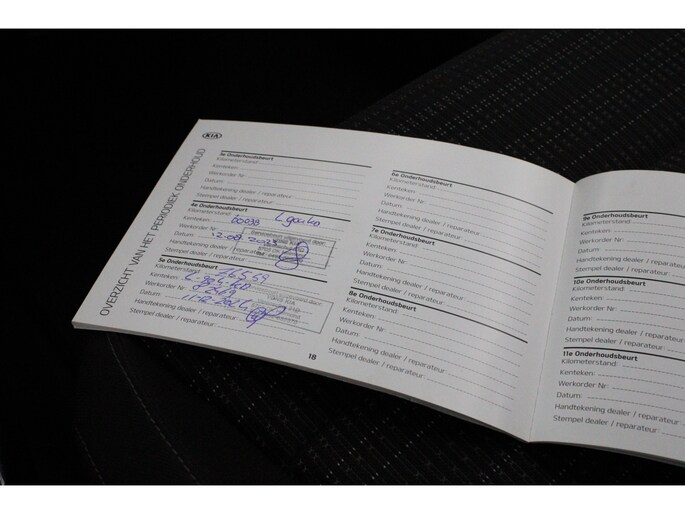 KIA
OVERZICHT VAN HET PERIODIEK ONDERHOUD
3e Onderhoudsbeurt
Kilometerstand:
Kenteken:
Werkorder Nr:
Datum:
Handtekening dealer / reparateur:
Stempel dealer / reparateur:
4e Onderhoudsbeurt
Kilometerstand:
Kenteken:
Werkorder Nr: 00038
Datum:
Handtekening dealer / reparateur:
Stempel dealer / reparateur:
5e Onderhoudsbeurt
Kilometerstand:
Kenteken:
Werkorder Nr:
Datum:
Handtekening dealer / reparateur:
Stempel dealer / reparateur:
18
6e Onderhoudsbeurt
Kilometerstand:
Kenteken:
Werkorder Nr:
Datum:
Handtekening dealer / reparateur:
Stempel dealer / reparateur:
7e Onderhoudsbeurt
Kilometerstand:
Kenteken:
Werkorder Nr:
Datum:
Handtekening dealer / reparateur:
Stempel dealer / reparateur:
8e Onderhoudsbeurt
Kilometerstand:
Kenteken:
Werkorder Nr:
Datum:
Handtekening dealer / reparateur:
Stempel dealer / reparateur:
9e Onderhoudsbeurt
Kilometerstand:
Kenteken:
Werkorder Nr:
Datum:
Handtekening dealer
Stempel dealer / reparateur:
10e Onderhoudsbeurt
Kilometerstand:
Kenteken:
Werkorder Nr:
Datum:
Handtekening dealer / reparateur:
Stempel dealer / reparateur:
11e Onderhoudsbeurt
Kilometerstand:
Kenteken:
Werkorder Nr:
Datum:
Handtekening dealer / reparateur:
Stempel dealer / reparateur: